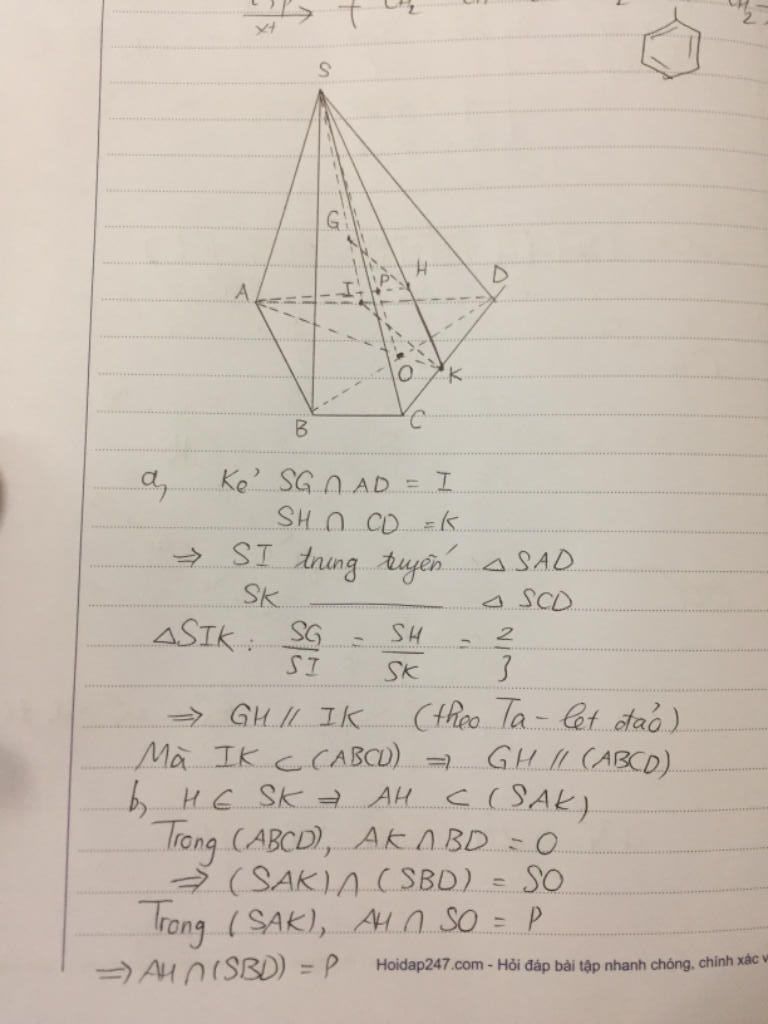 xt
CH₂
2
S
G
H
D
A
I
P
O
K
B
C
a, Kẻ SG ∩ AD = I
SH ∩ CD = K
⇒ SI trung tuyến △ SAD
SK ———— △ SCD
△SIK : SG/SI = SH/SK = 2/3
⇒ GH // IK (theo Ta-lét đảo)
Mà IK ⊂ (ABCD) ⇒ GH // (ABCD)
b, H ∈ SK ⇒ AH ⊂ (SAK)
Trong (ABCD), AK ∩ BD = O
⇒ (SAK) ∩ (SBD) = SO
Trong (SAK), AH ∩ SO = P
⇒ AH ∩ (SBD) = P
Hoidap247.com - Hỏi đáp bài tập nhanh chóng, chính xác v